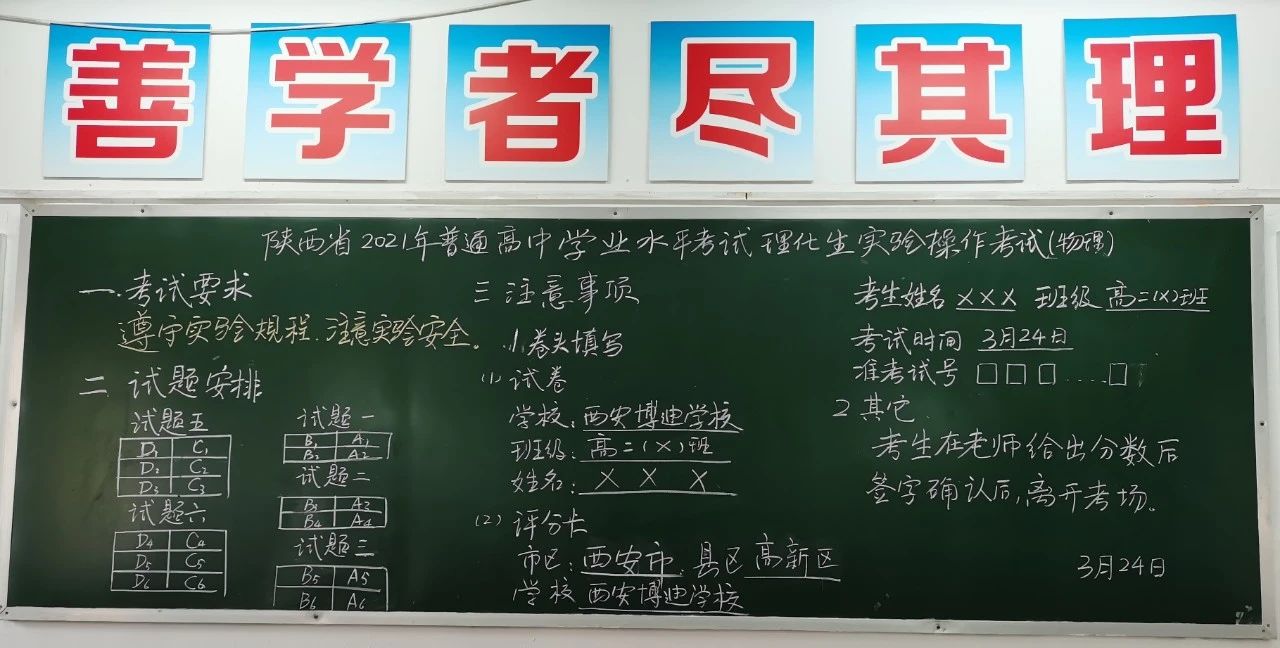 善学者尽其理
陕西省2021年普通高中学业水平考试理化生实验操作考试(物理)
一.考试要求
遵守实验规程.注意实验安全。
二 试题安排
试题五
D1 C1
D2 C2
D3 C3
试题六
D4 C4
D5 C5
D6 C6
试题一
B1 A1
B2 A2
试题二
B3 A3
B4 A4
试题三
B5 A5
B6 A6
三 注意事项
1.卷头填写
(1) 试卷
学校:西安博迪学校
班级:高二(X)班
姓名:X X X
(2) 评分卡
市区:西安市.县区 高新区
学校 西安博迪学校
考生姓名 XXX 班级 高二(X)班
考试时间 3月24日
准考试号 □□□....□
2 其它
考生在老师给出分数后
签字确认后,离开考场。
3月24日